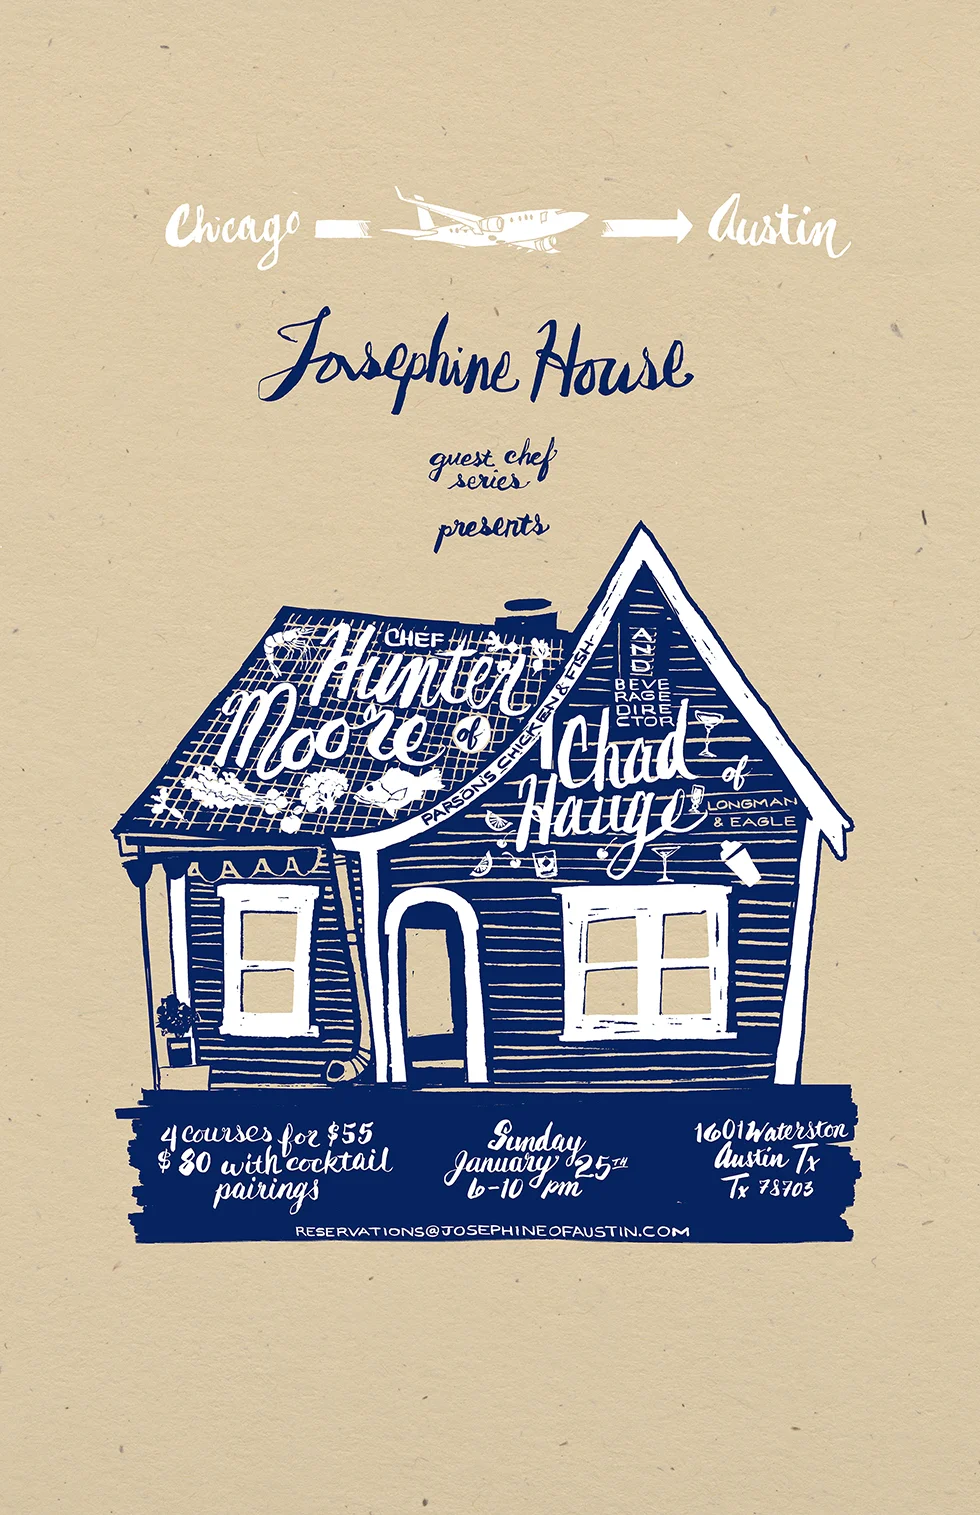 Chicago Austin
Josephine House
guest chef
series
presents
CHEF
Hunter
Moore of
PARSON'S CHICKEN & FISH
AND
BEVE
RAGE
DIRE
CTOR
Chad
Hauge
of
LONGMAN
& EAGLE
4 courses for $55
$80 with cocktail
pairings
Sunday
January 25TH
6-10 pm
1601 Waterston
Austin Tx
Tx 78703
RESERVATIONS@JOSEPHINEOFAUSTIN.COM